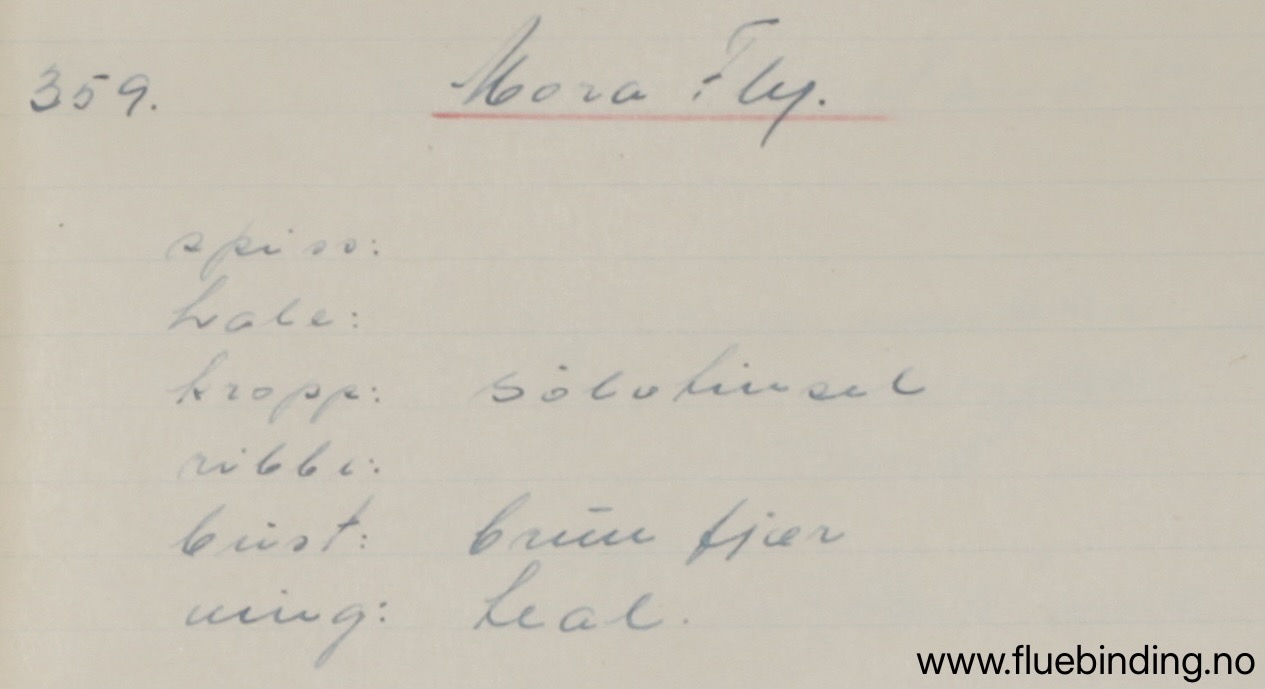 359. Mora Fly.
spiss:
hale:
kropp: Sölvtinsel
ribbe:
bust: brun fjær
ving: teal.
www.fluebinding.no